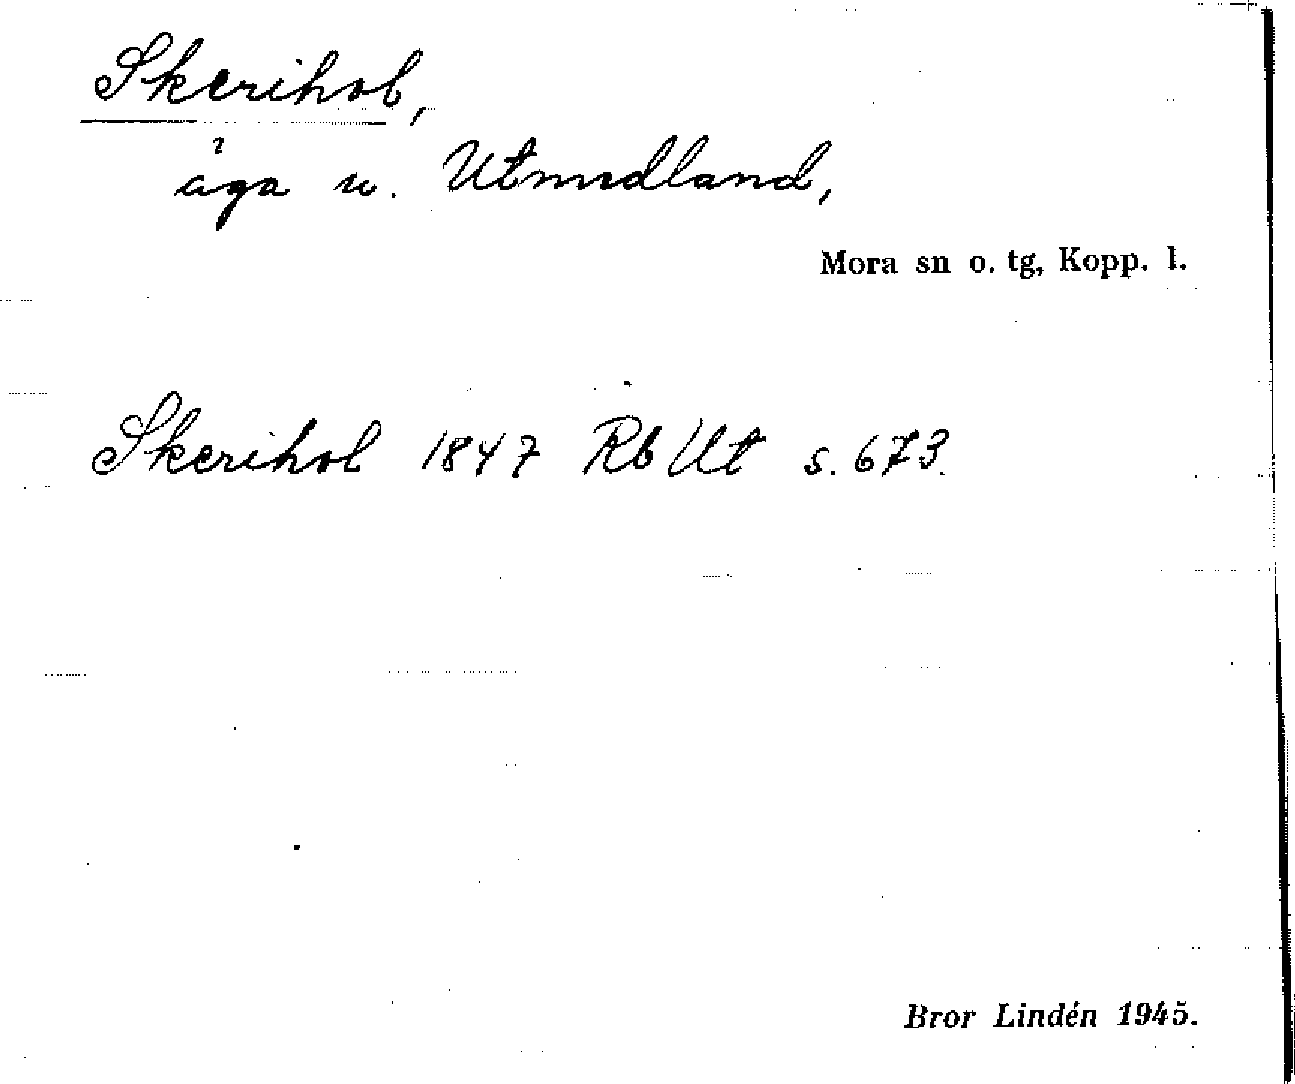 Skerihol,
åga u. Utmedland,
Mora sn o. tg, Kopp. l.
Skerihol 1847 Rb Ut s. 673.
Bror Lindén 1945.